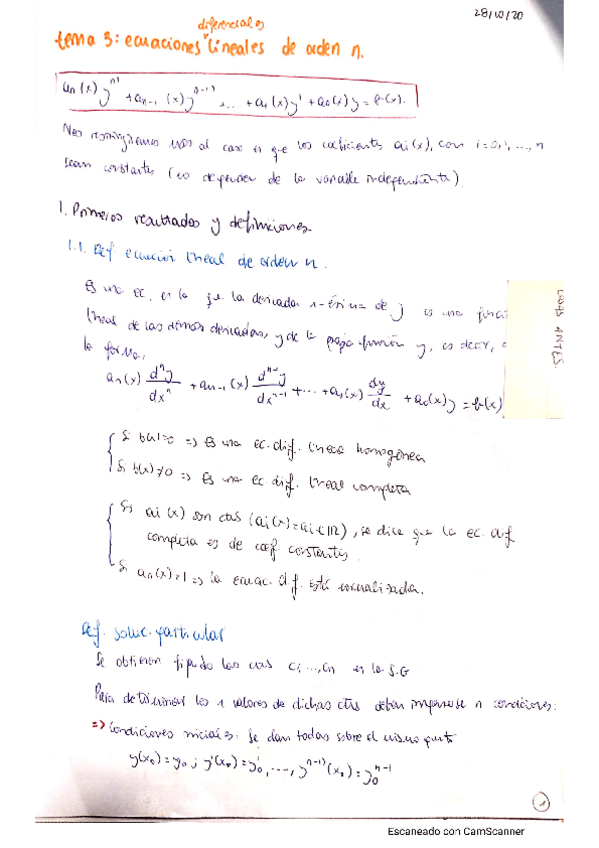 28/10/20
diferenciales
tema 3: ecuaciones lineales de orden n.
an(x) y^n) + an-1(x) y^n-1) + ... + a1(x) y' + a0(x) y = b(x).
Nos restringiremos más al caso en que los coeficientes ai(x), con i=0,1,...,n
sean constantes (no dependen de la variable independiente).
1. Primeros resultados y definiciones.
1.1. Def ecuación lineal de orden n.
Es una ec. en la que la derivada n-ésima de y es una
lineal de las demás derivadas, y de la propia función y, es decir,
la forma,
an(x) d^n y/dx^n + an-1(x) d^n-1 y/dx^n-1 + ... + a1(x) dy/dx + a0(x)y = b(x)
UNOS ANTES
Si b(x)=0 => Es una ec. dif. lineal homogénea
Si b(x)≠0 => Es una ec. dif. lineal completa
Si ai(x) son ctas (ai(x)=ai∈ℝ), se dice que la ec. dif
completa es de coef constantes.
Si an(x)=1 => la ecuac. dif. está normalizada.
Def. soluc. particular
Se obtienen fijando las ctas c1,...,cn en la S.G
Para determinar los n valores de dichas ctas deben imponerse n condiciones:
=> Condiciones iniciales: Se dan todas sobre el mismo punto
y(x0)=y0; y'(x0)=y0', ..., y^n-1)(x0)=y0^n-1
1
Escaneado con CamScanner